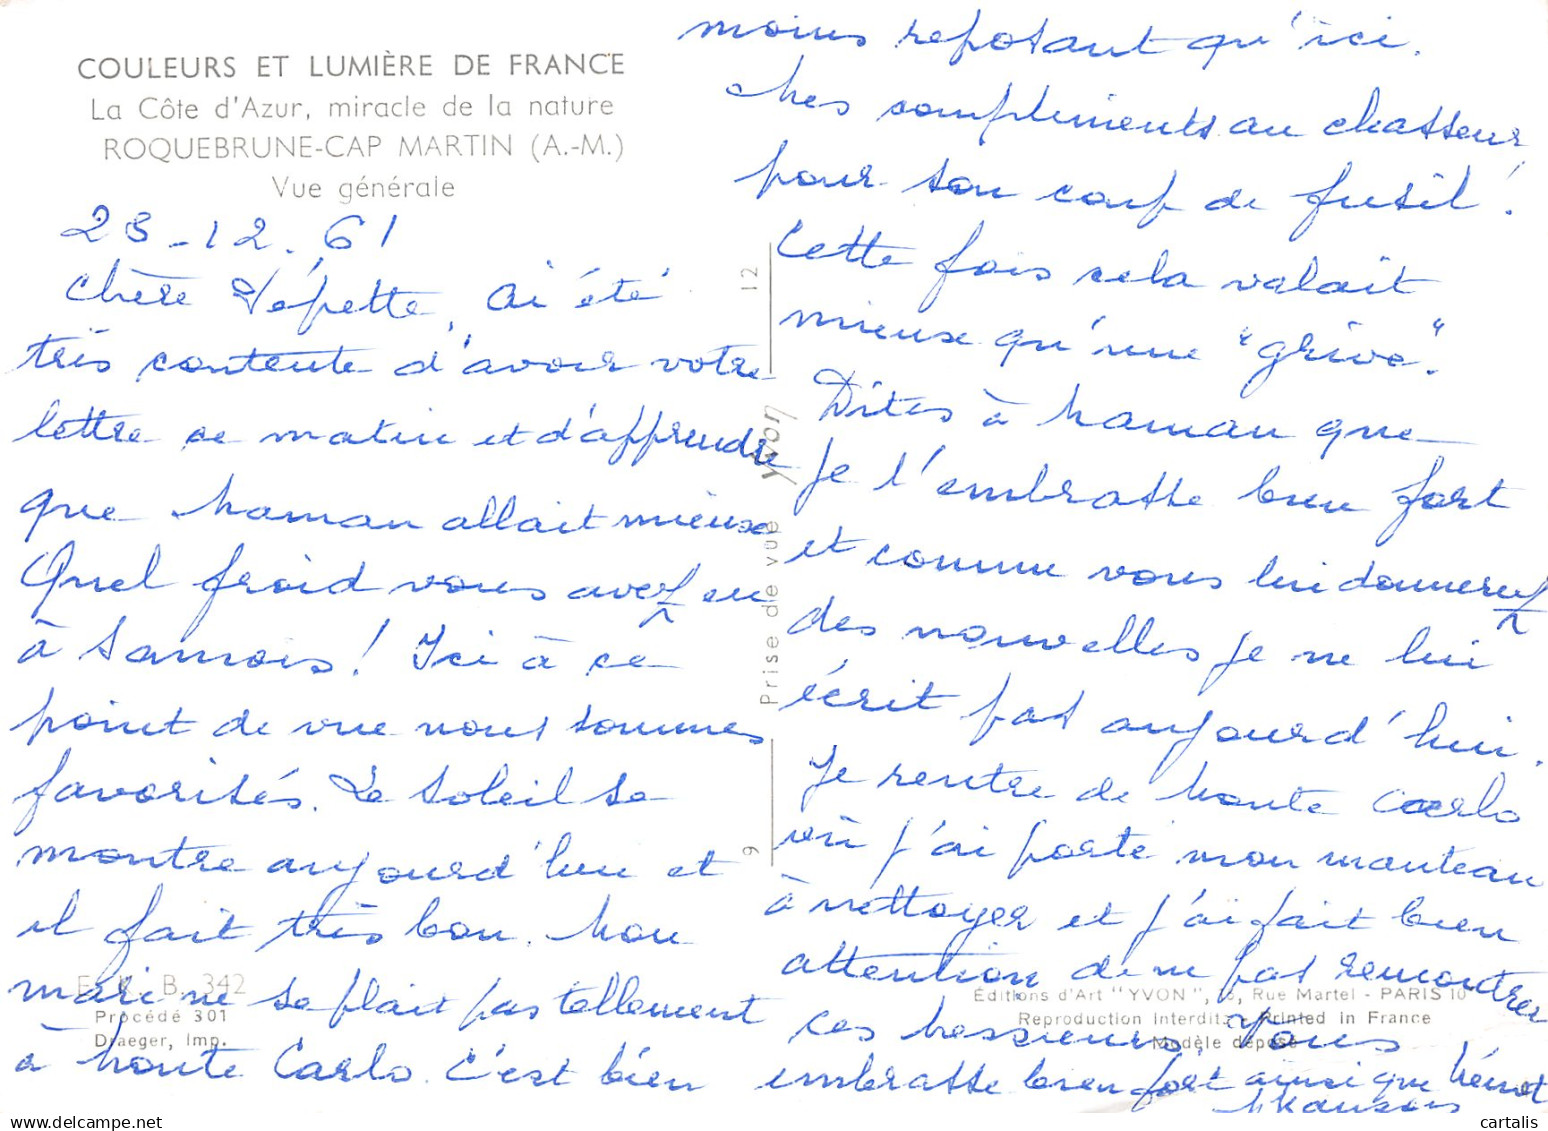 COULEURS ET LUMIÈRE DE FRANCE
La Côte d'Azur, miracle de la nature
ROQUEBRUNE-CAP MARTIN (A.-M.)
Vue générale
23-12.61
Chère Pépette, ai été
très contente d'avoir votre
lettre ce matin et d'apprendre
que Maman allait mieux
Quel froid vous avez eu
à Samois! Ici à ce
point de vue nous sommes
favorisés. Le soleil se
montre aujourd'hui et
il fait très bon. Mon
mari ne se plait pas tellement
à Monte Carlo. C'est bien
moins reposant qu'ici.
Mes compliments au chasseur
pour son coup de fusil!
Cette fois cela valait
mieux qu'une "grive".
Dites à Maman que
je l'embrasse bien fort
et comme vous lui donnerez
des nouvelles je ne lui
écrit pas aujourd'hui.
Je rentre de Monte Carlo
où j'ai porté mon manteau
à nettoyer et j'ai fait bien
attention de ne pas rencontrer
ces Messieurs. Vous
embrasse bien fort ainsi que
12
yvon
Prise de vue
9
E. K. B. 342
Procédé 301
Draeger, Imp.
Editions d'Art "YVON", 15, Rue Martel - PARIS 10
Reproduction Interdite - Printed in France
Modèle déposé